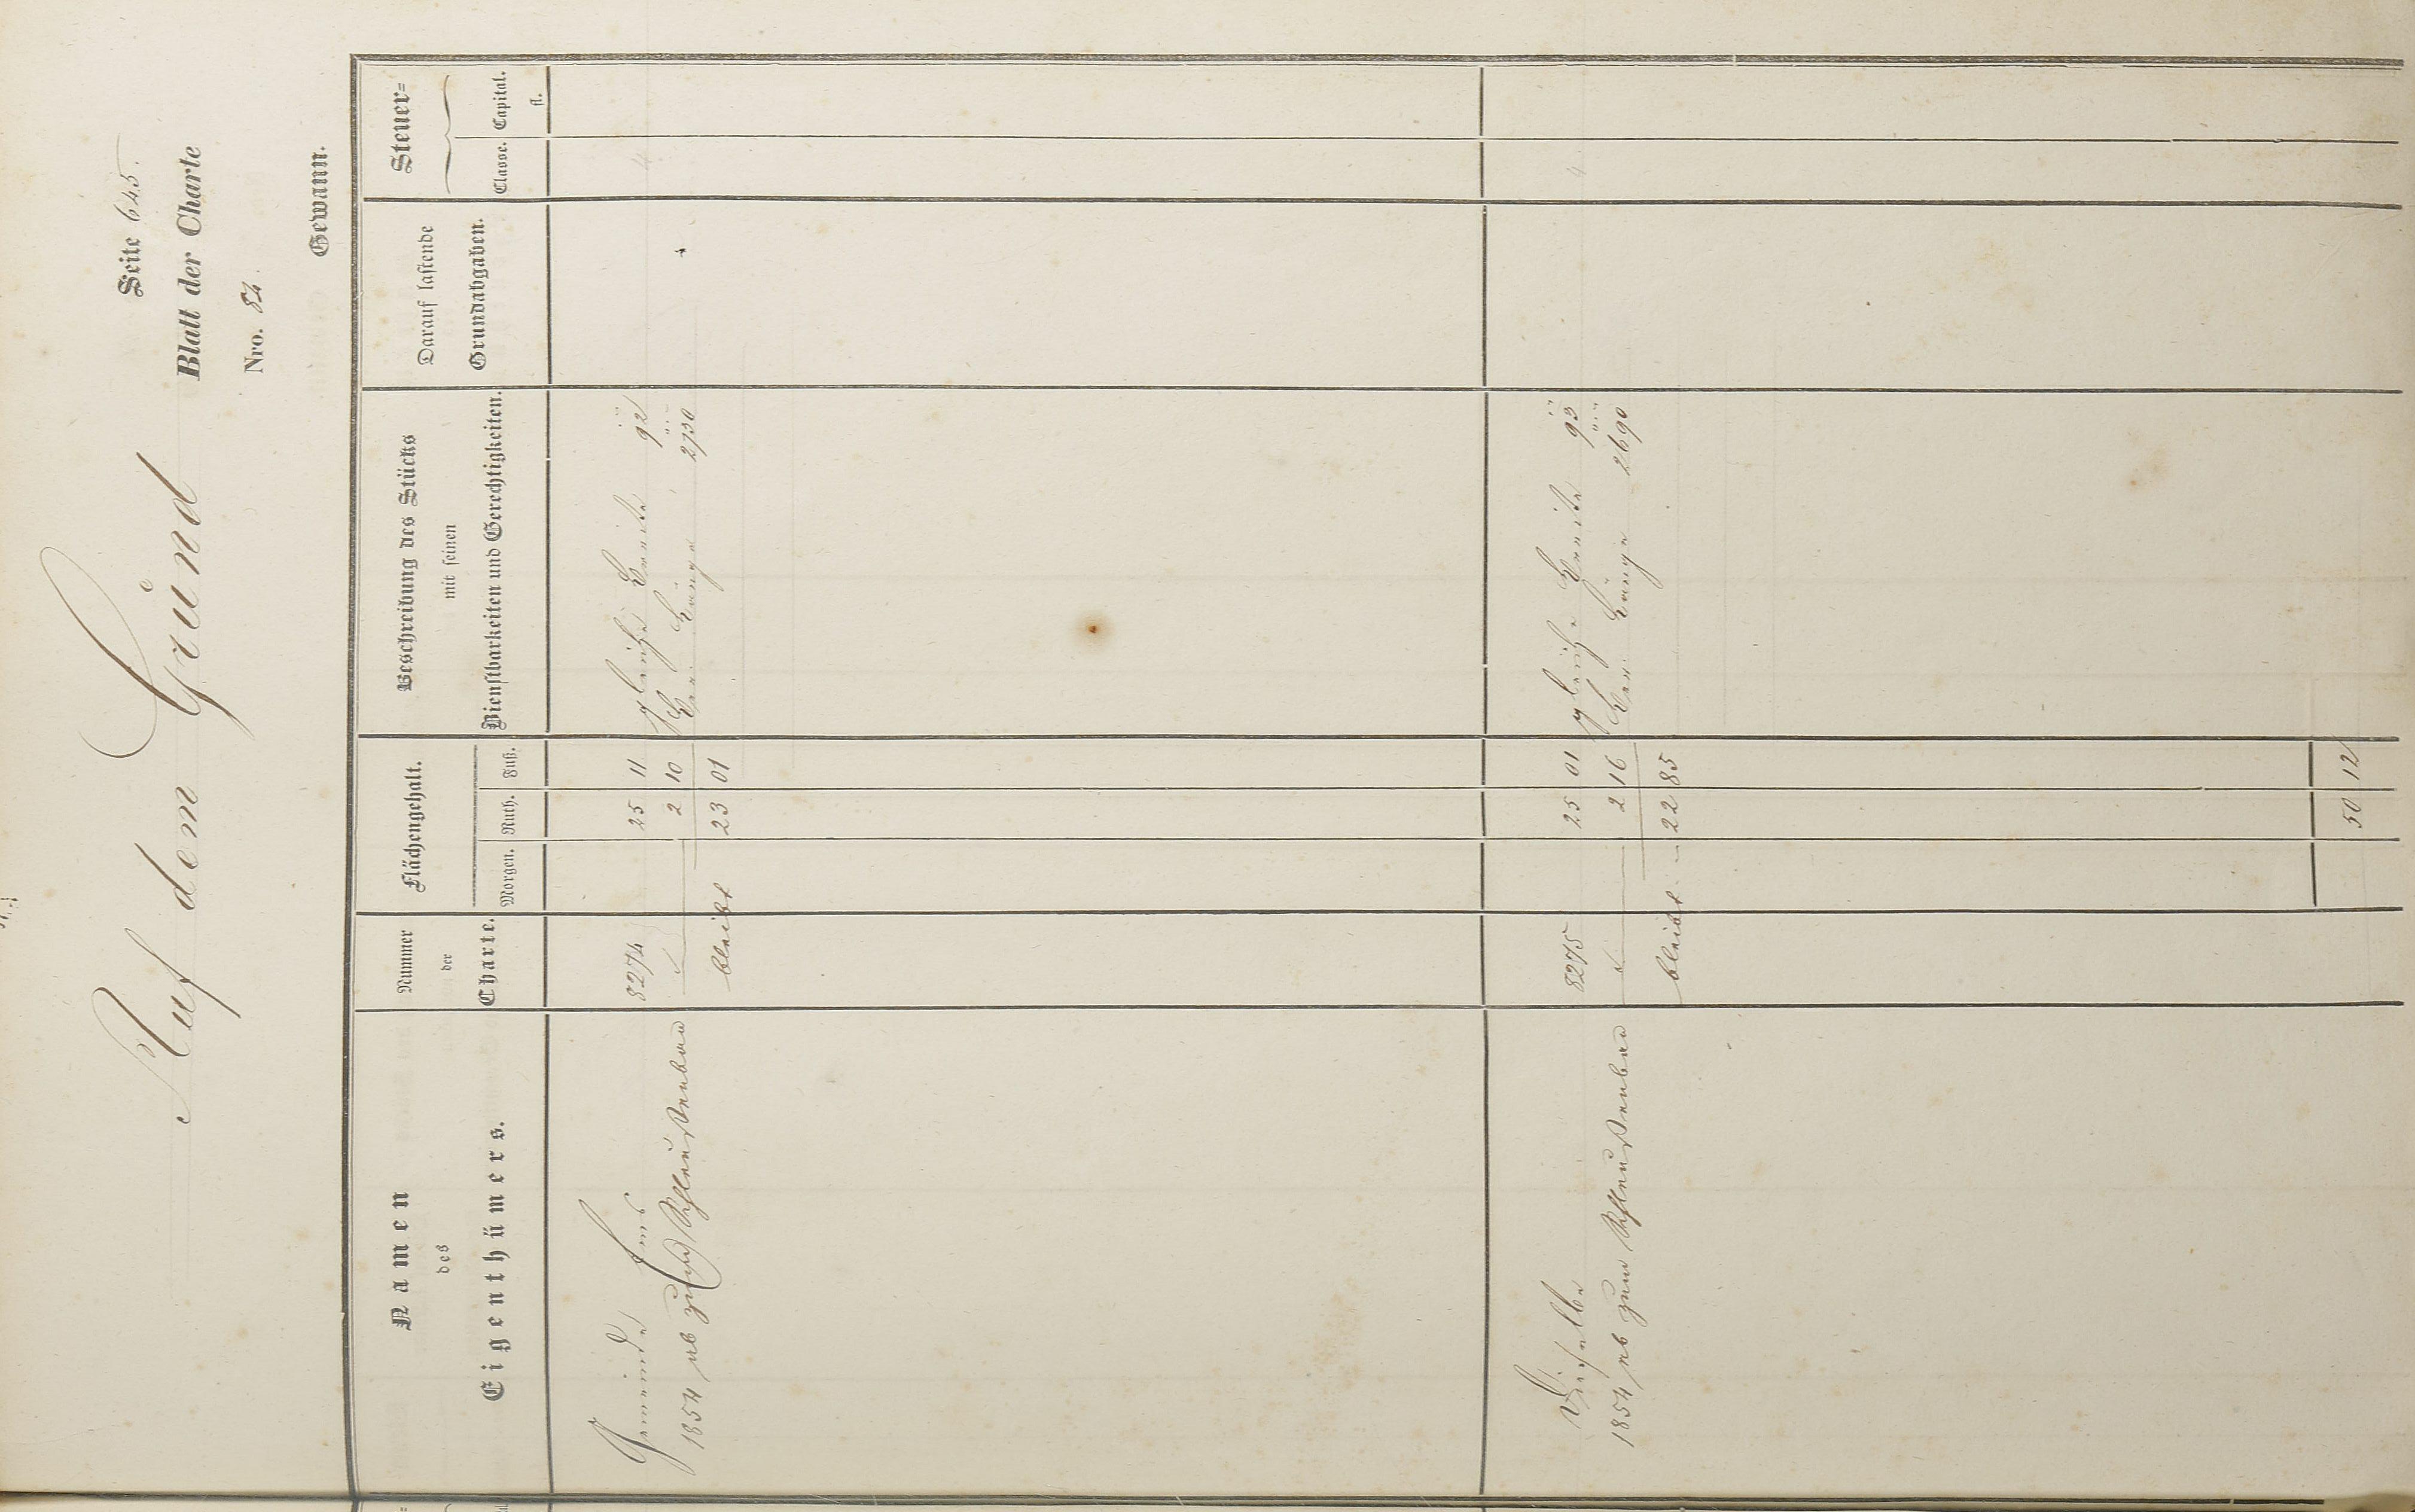 Seite 645.
Auf dem Gründ
Blatt der Charte
Nro. 82.
Gewann.
Namen
des
Eigenthümers.
Nummer
der
Charte.
Flächengehalt.
Morgen. Ruth. Fuß.
Beschreibung des Stücks
mit seinen
Dienstbarkeiten und Gerechtigkeiten.
Darauf lastende
Grundabgaben.
Steuer=
Classe. Capital.
fl.
Gemeinde Ems 8274 25 11 gleiche Breite 92
1854 ab zum Schleußenbau 2 10 Ver. Länge 2730
bleibt 23 01
Dieselbe 8275 25 01 gleiche Breite 93
1854 ab zum Schleußenbau 2 16 Ver. Länge 2690
bleibt 22 85
50 12